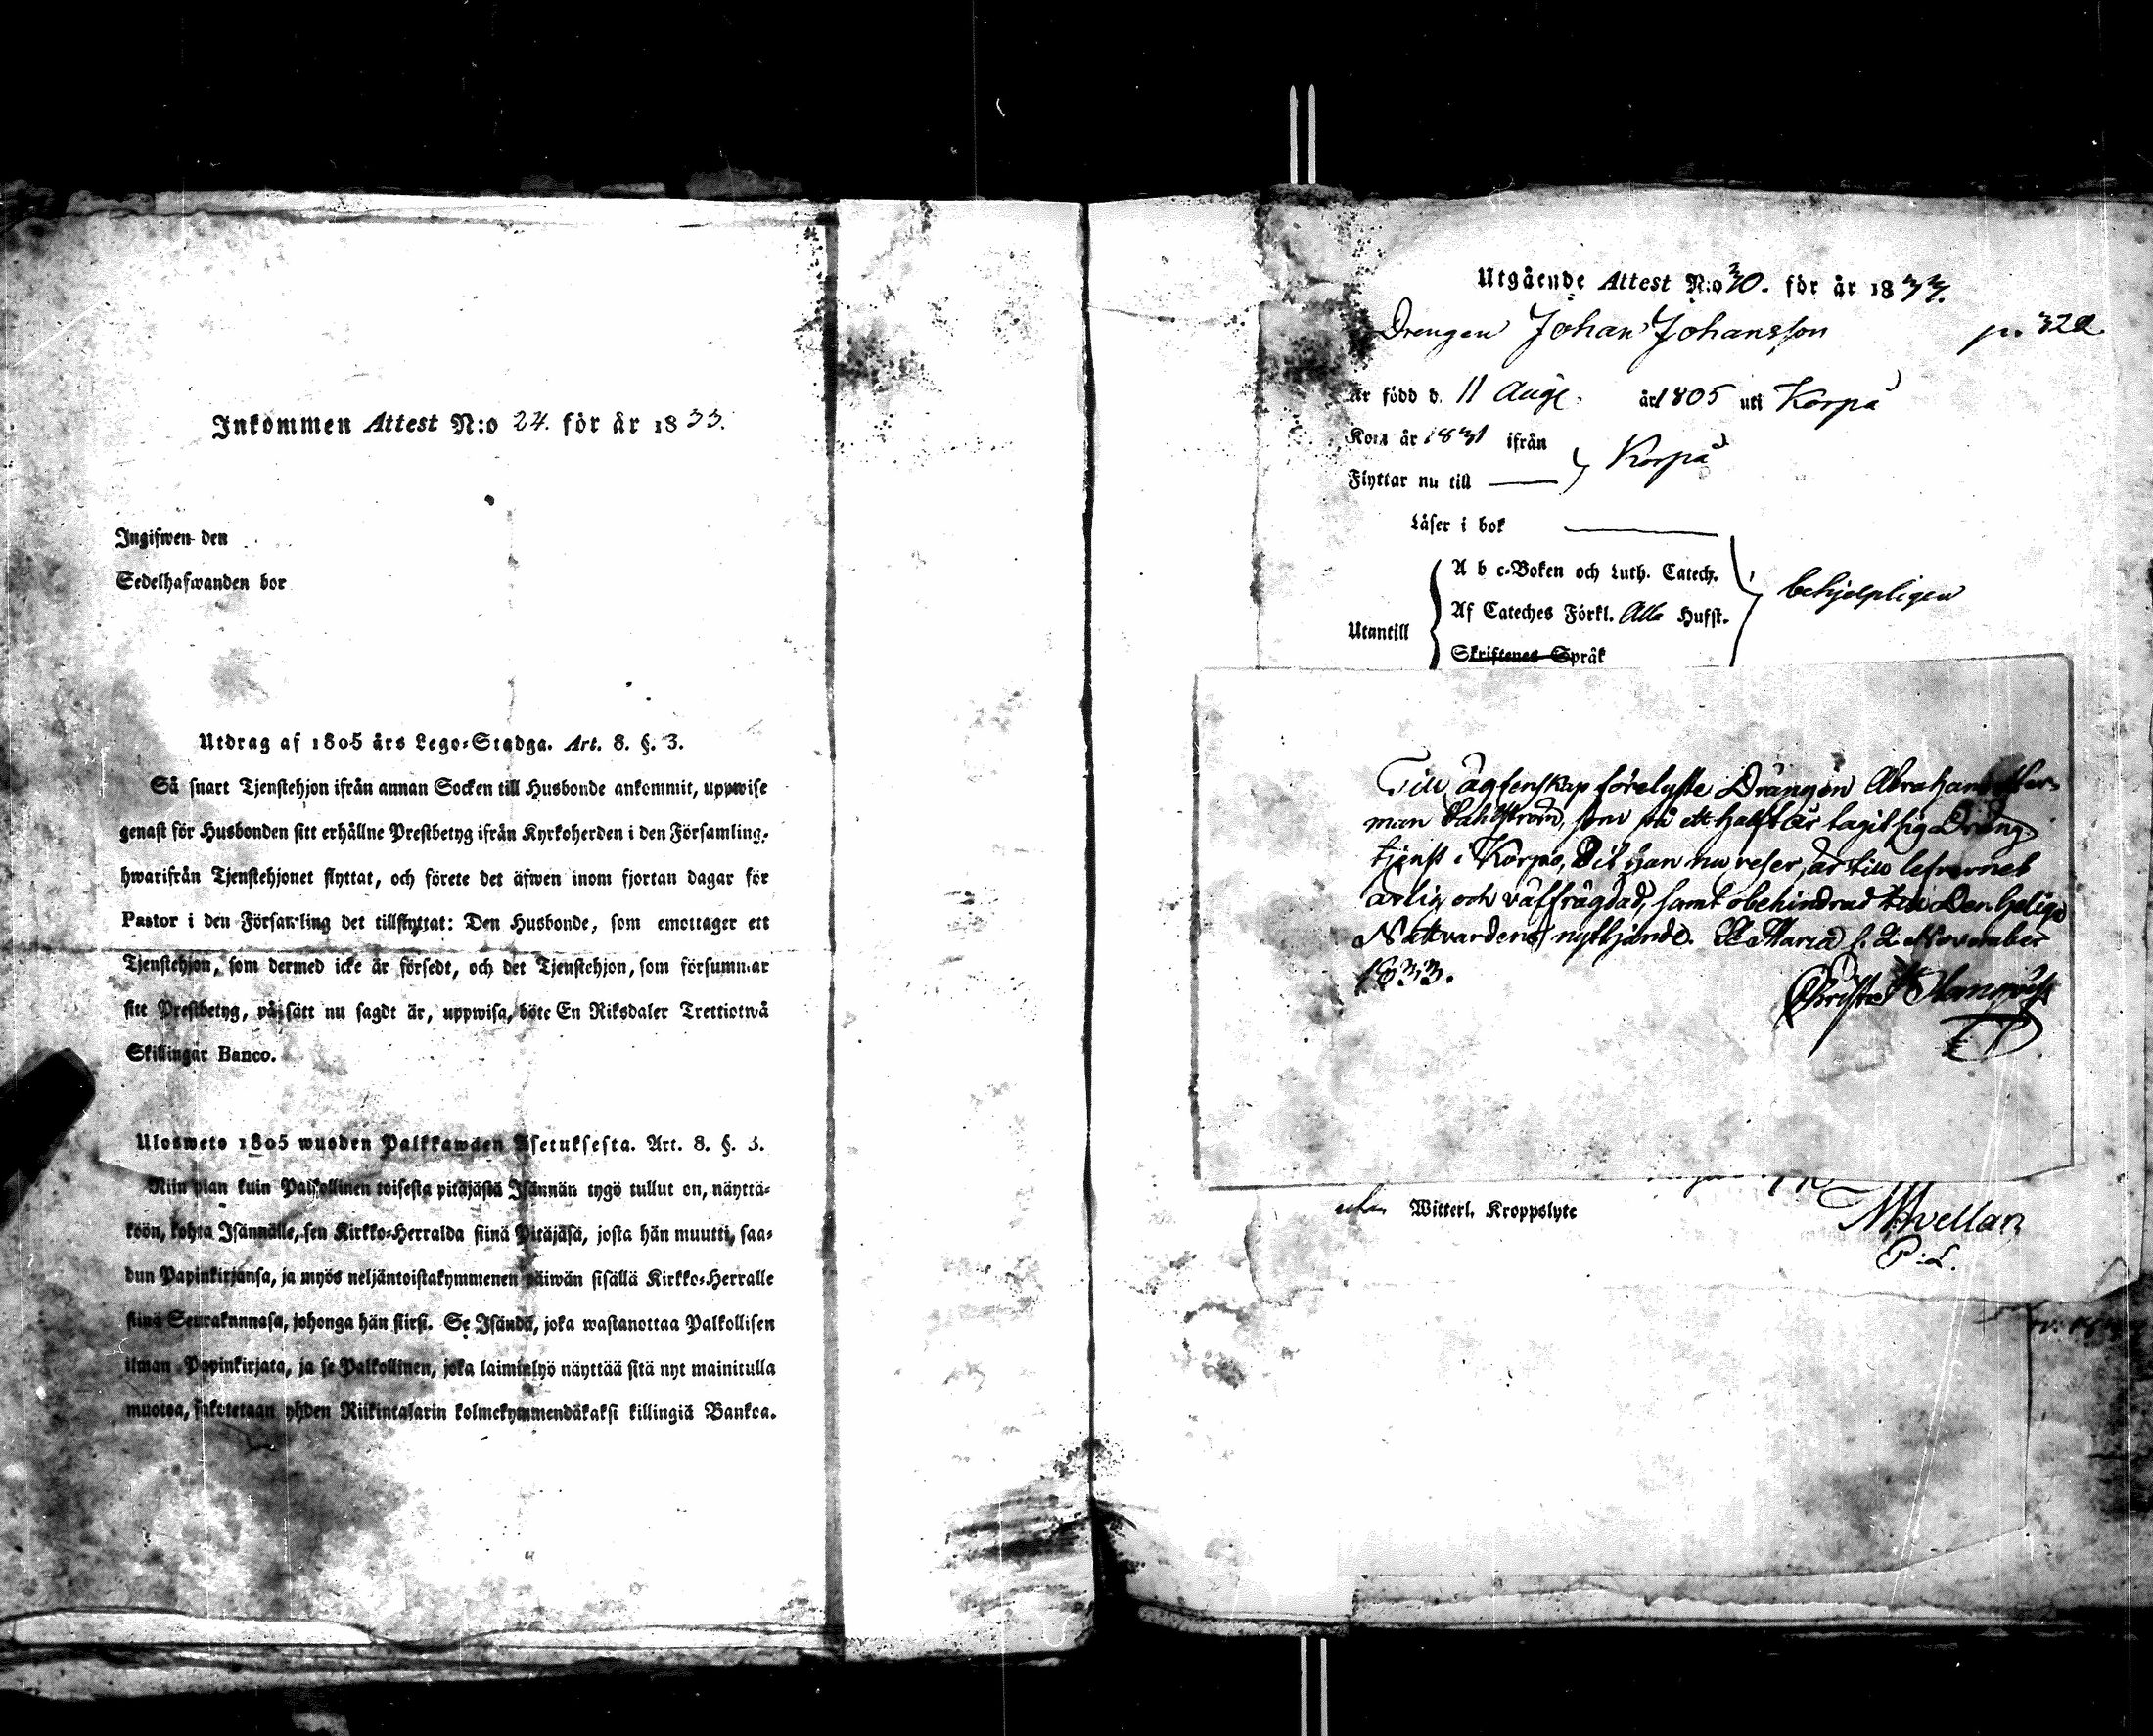 Inkommen Attest N:o 24. för år 1833.
Ingifwen den
Sedelhafwanden bor
Utdrag af 1805 års Lego-Stadga. Art. 8. §. 3.
Så snart Tjenstehjon ifrån annan Socken till Husbonde ankommit, uppwise
genast för Husbonden sitt erhållne Prestbetyg ifrån Kyrkoherden i den Församling,
hwarifrån Tjenstehjonet flyttat, och förete det äfwen inom fjortan dagar för
Pastor i den Församling det tillflyttat: Den Husbonde, som emottager ett
Tjenstehjon, som dermed icke är försedt, och det Tjenstehjon, som försummar
sitt Prestbetyg, på sätt nu sagdt är, uppwisa, böte En Riksdaler Trettiotwå
Skillingar Banco.
Ulosweto 1805 wuoden Palkkawäen Asetuksesta. Art. 8. §. 3.
Niin pian kuin Palkollinen toisesta pitäjästä Isännän tygö tullut on, näyttä-
köön, kohta Isännälle, sen Kirkko-Herralda siinä Pitäjäsä, josta hän muutti, saa-
dun Papinkirjansa, ja myös neljäntoistakymmenen päiwän sisällä Kirkko-Herralle
siinä Seurakunnasa, johonga hän siirsi. Se Isändä, joka wastanottaa Palkollisen
ilman Papinkirjata, ja se Palkollinen, joka laiminlyö näyttää sitä nyt mainitulla
muotoa, sakotetaan yhden Riikintalarin kolmekymmendäkaksi killingiä Bankoa.
Utgående Attest N:o 30. för år 1833.
Drengen Johan Johansson p. 322
Är född d. 11 Aug. år 1805 uti Korpå
Kom år 1831 ifrån
Flyttar nu till } Korpå
Läser i bok
A b c-Boken och Luth. Catech.
Utantill { Af Cateches Förkl. Alla Hufst. } behjelpligen
Skriftenes Språk
Till ägtenskap förelyste Drängen Abraham Her-
man Dahlström, som på ett halft år tagit sig Dräng
tjenst i Korpo, dit han nu reser, är till lefvernet
ärlig och välfrägdad, samt obehindrad till Den Helige
Nattvardens nyttjande. St Maria d. 2 November
1833.
Witterl. Kroppslyte
P. L.